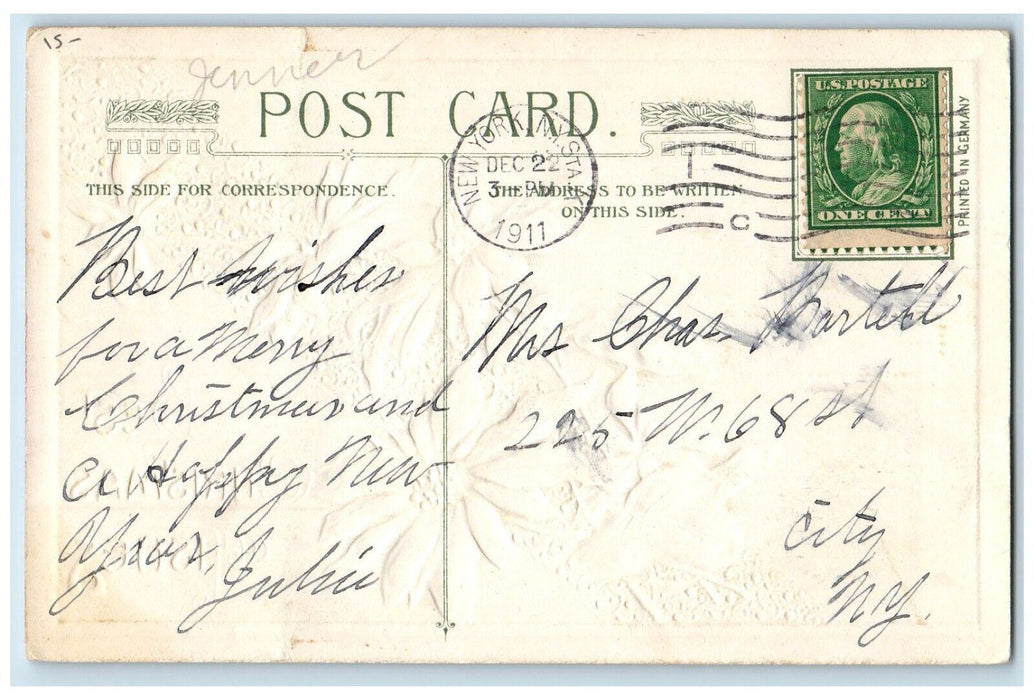 15-
Jenner
POST CARD.
THIS SIDE FOR CORRESPONDENCE.
THE ADDRESS TO BE WRITTEN
ON THIS SIDE.
NEW YORK, N.Y. STA
DEC 22
3 PM
1911
T
C
U.S. POSTAGE
ONE CENT
PRINTED IN GERMANY
Best Wishes
for a Merry
Christmas and
a Happy New
Year,
Julia
Mrs Chas. Bartell
225 W. 68 St
City
NY.